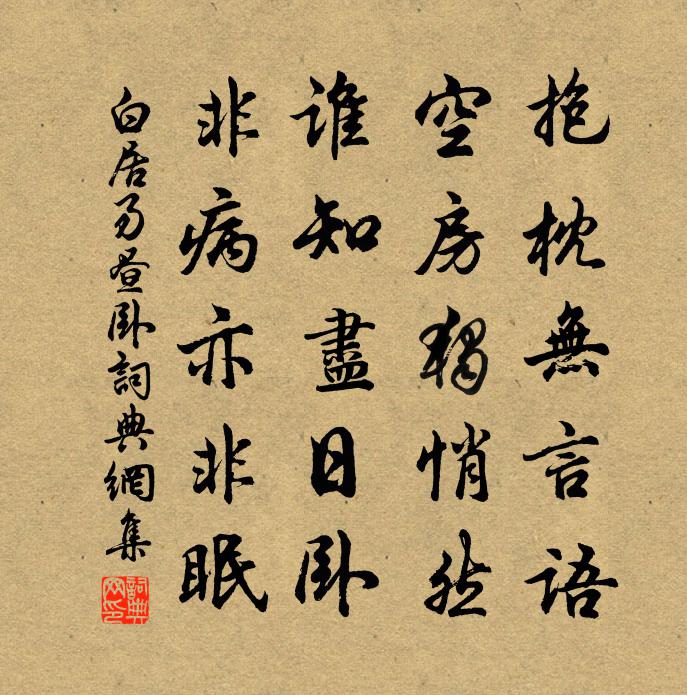 抱枕無言語
空房獨悄然
誰知盡日卧
非病亦非眠
白居易晝卧詞典網集
詞典網印